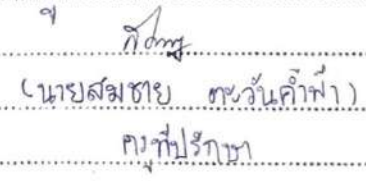 (นายสมชาย ตะวันค้ำฟ้า)
ครูที่ปรึกษา